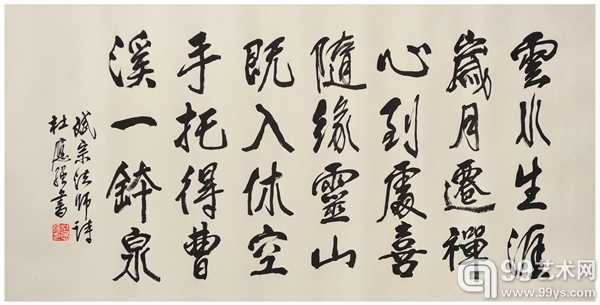 雲水生涯
歲月遷禪
心到處喜
隨緣靈山
既入休空
手托得曹
溪一鉢泉
斌宗法師詩
杜應強書
99艺术网
www.99ys.com